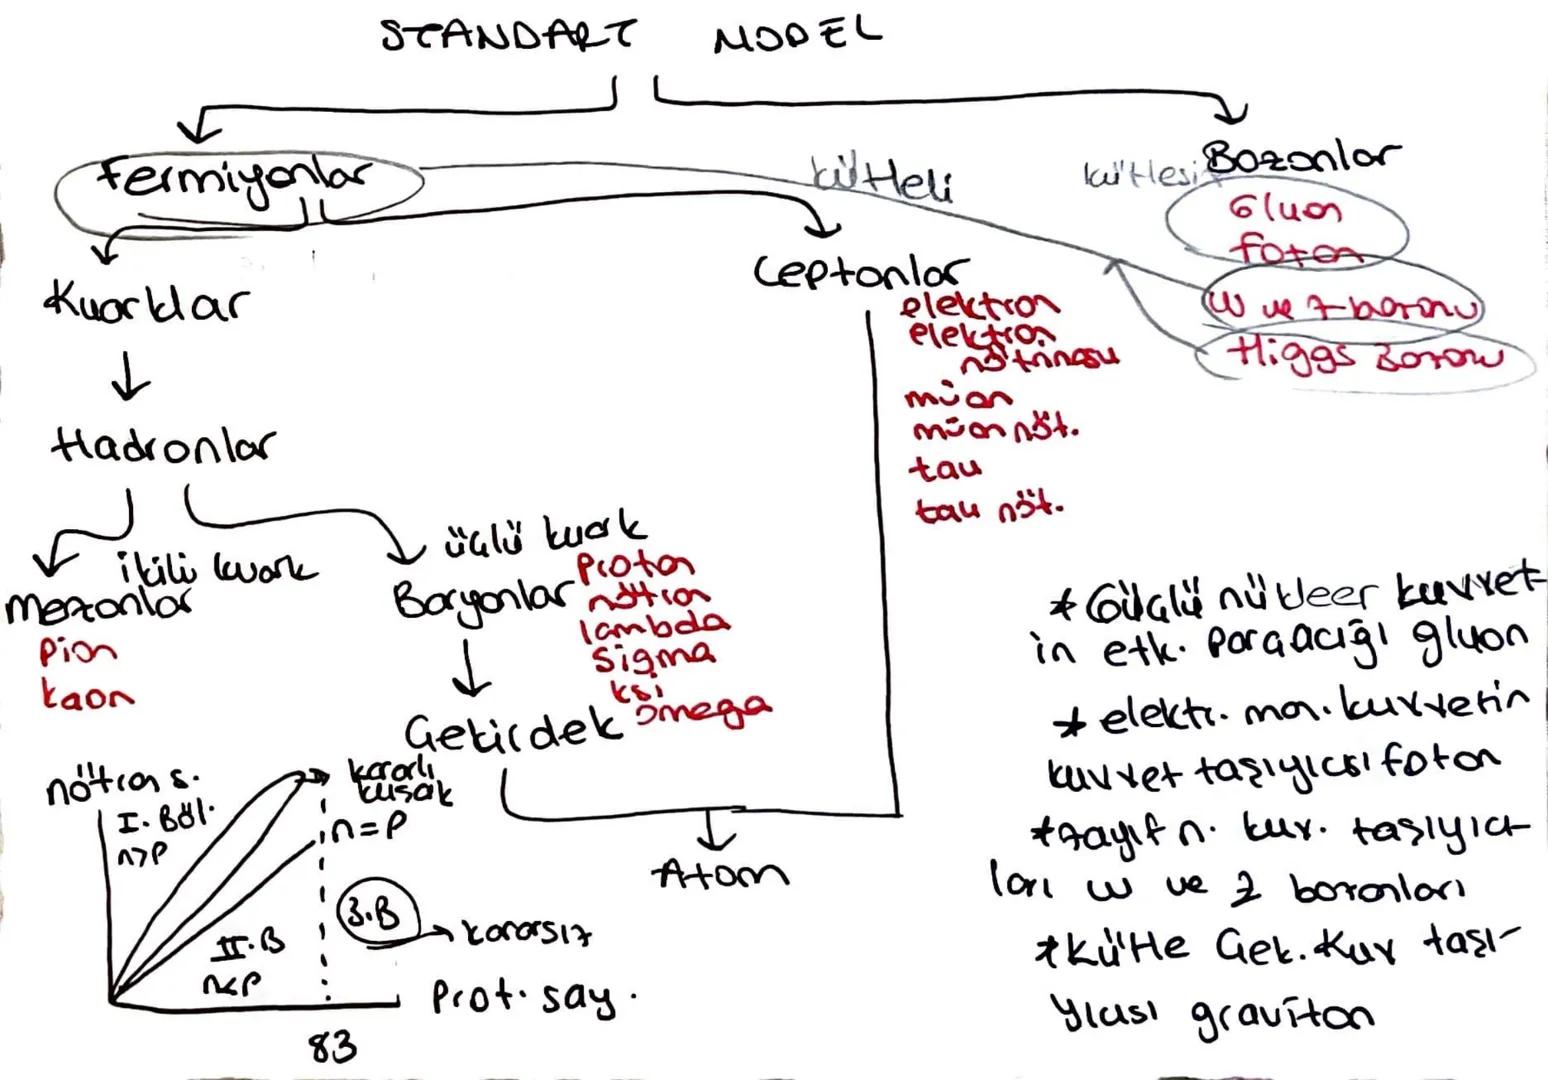 STANDART MODEL
Fermiyonlar
kütleli
kütlesiz
Bozonlar
Gluon
foton
W ve Z bozonu
Higgs Bozonu
Kuarklar
Leptonlar
elektron
elektron
nötrinosu
müon
müon nöt.
tau
tau nöt.
Hadronlar
ikili kuark
Mezonlar
pion
kaon
üçlü kuark
Baryonlar
proton
nötron
lambda
sigma
ksi
omega
Çekirdek
Atom
nötron s.
I. Böl.
n>p
kararlı
kuşak
n=p
II.B
n<p
3.B
kararsız
Prot. say.
83
*Güçlü nükleer kuvvet-
in etk. parçacığı gluon
* elektr. man. kuvvetin
kuvvet taşıyıcısı foton
*zayıf n. kuv. taşıyıcı
ları w ve z bozonları
*Kütle Çek. Kuv taşı-
yıcısı graviton